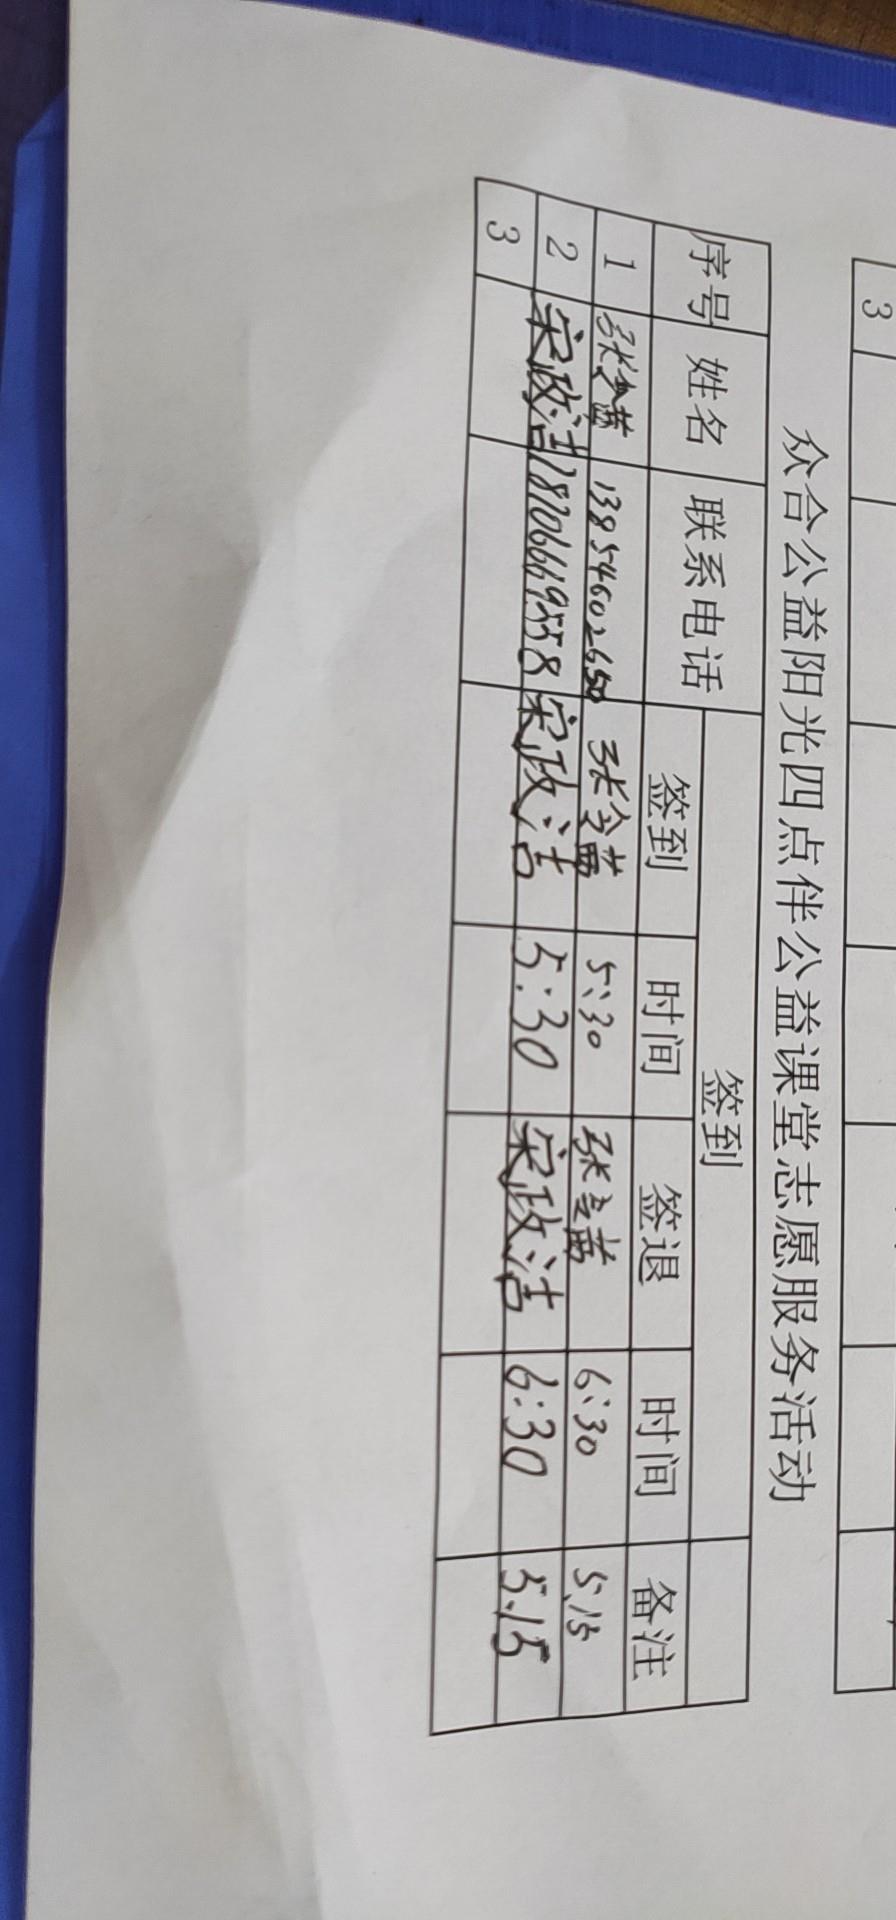 3
众合公益阳光四点伴公益课堂志愿服务活动
序号 姓名 联系电话 签到
签到 时间 签退 时间 备注
1 张会茜 13854602650 张会茜 5:30 张会茜 6:30 5.15
2 宋政洁 17820669558 宋政洁 5:30 宋政洁 6:30 5.15
3